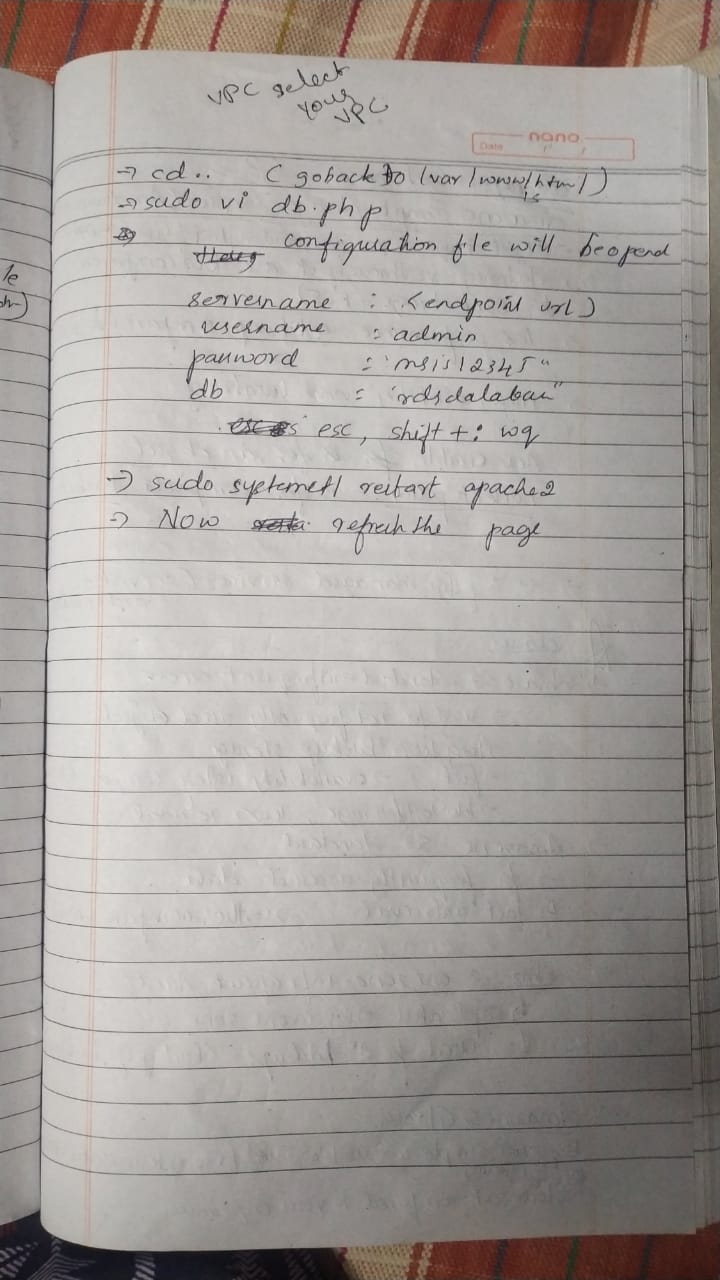 VPC select
your
VPC
nano
Date
→ cd.. ( goback to /var/www/html/)
→ sudo vi db.php
is
configuration file will be opend
servername : <endpoint url>
username : admin
password = "msis12345"
db = "rdsdatabase"
esc, shift + : wq
→ sudo systemctl restart apache2
→ Now refresh the page